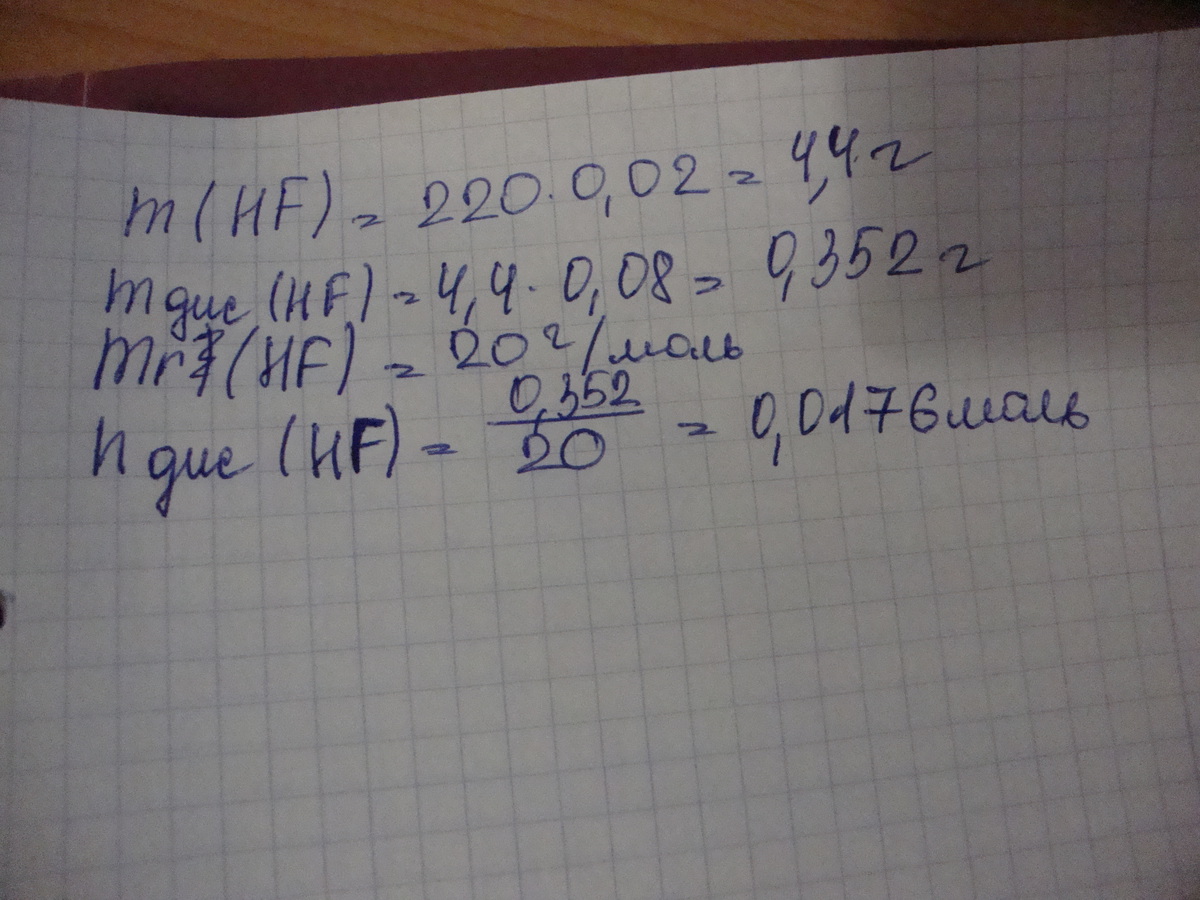 m(HF) = 220·0,02 = 4,4 г
m дис (HF) = 4,4·0,08 = 0,352 г
Mr (HF) = 20 г/моль
n дис (HF) = 0,352/20 = 0,0176 моль